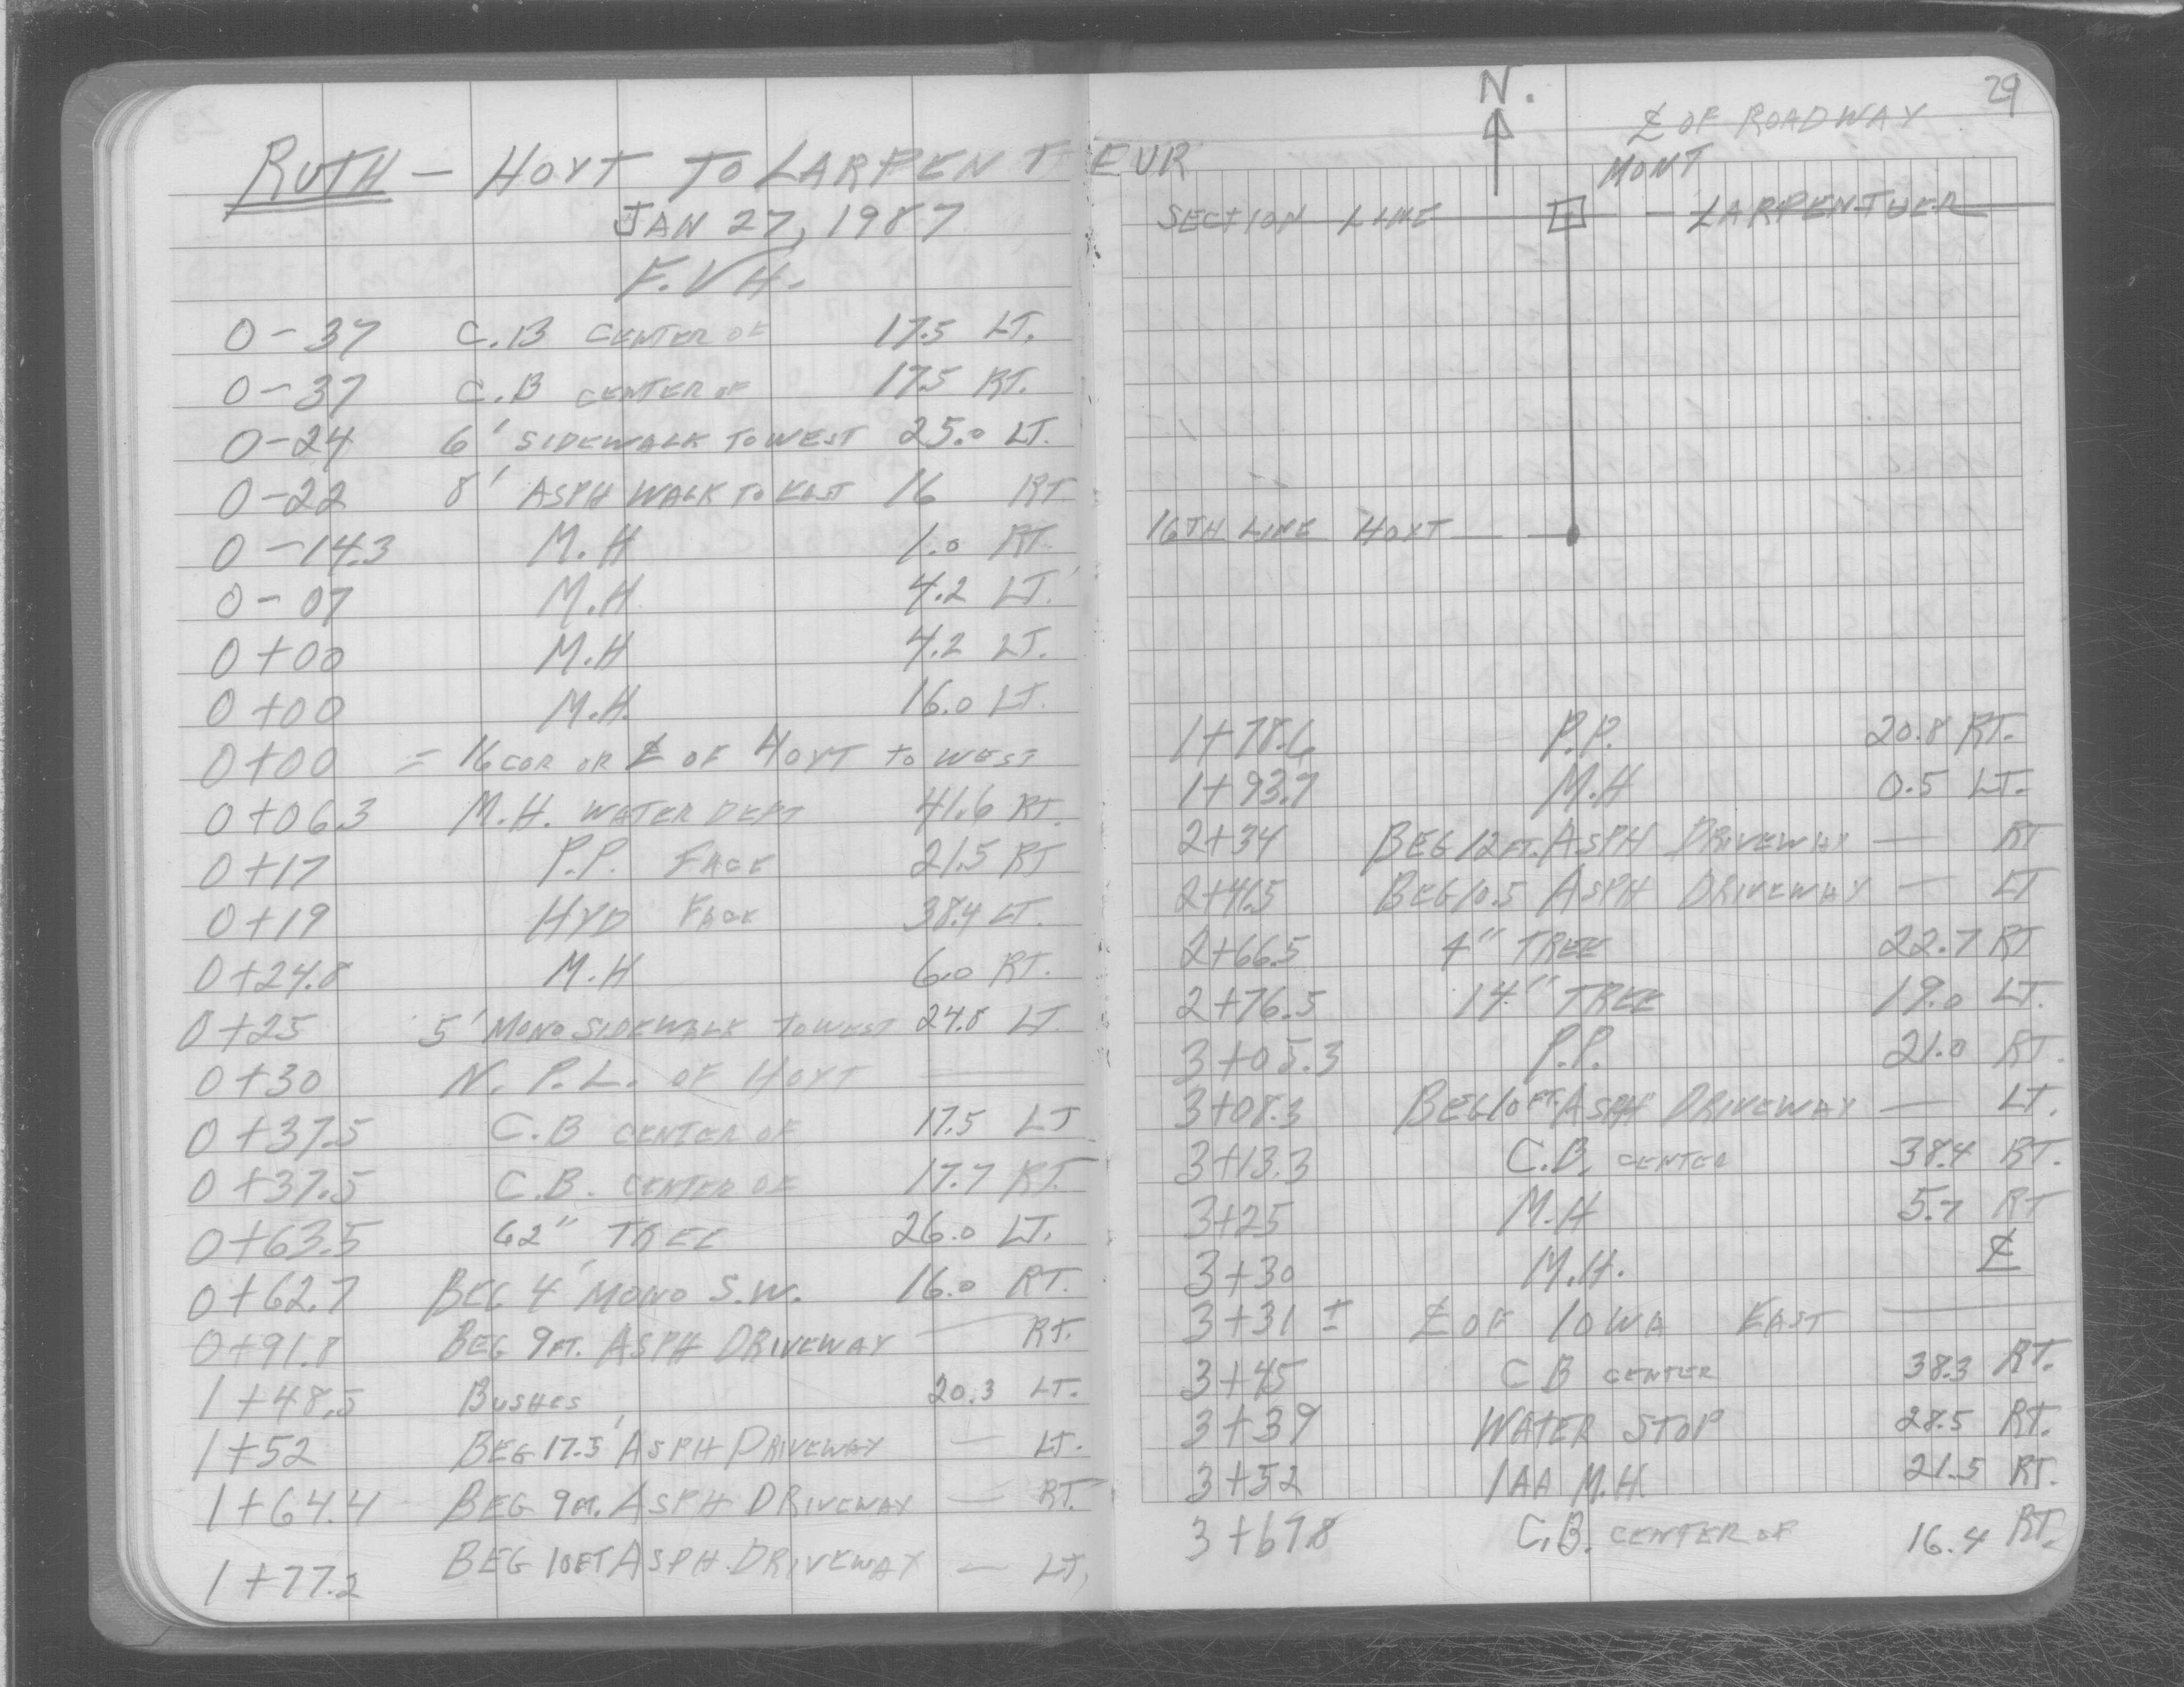 RUTH - HOYT TO LARPENTEUR
JAN 27, 1987
F.V.H.
0-37 C.B CENTER OF 17.5 LT.
0-37 C.B CENTER OF 17.5 RT.
0-24 6' SIDEWALK TO WEST 25.0 LT.
0-22 8' ASPH WALK TO EAST 16 RT
0-14.3 M.H 1.0 RT.
0-07 M.H. 4.2 LT.
0+00 M.H 4.2 LT.
0+00 M.H. 16.0 LT.
0+00 = 16 COR OR ℄ OF HOYT TO WEST
0+06.3 M.H. WATER DEPT 41.6 RT.
0+17 P.P. FACE 21.5 RT
0+19 HYD FACE 38.4 LT.
0+24.8 M.H 6.0 RT.
0+25 5' MONO SIDEWALK TO WEST 24.8 LT.
0+30 N. P.L. OF HOYT —
0+37.5 C.B CENTER OF 17.5 LT
0+37.5 C.B. CENTER OF 17.7 RT.
0+63.5 42" TREE 26.0 LT.
0+62.7 BEG 4' MONO S.W. 16.0 RT.
0+91.8 BEG 9 FT. ASPH DRIVEWAY — RT.
1+48.5 BUSHES 20.3 LT.
1+52 BEG 17.5' ASPH DRIVEWAY — LT.
1+64.4 BEG 9 FT. ASPH DRIVEWAY — RT.
1+77.2 BEG 10 FT ASPH. DRIVEWAY — LT.
29
N.
℄ OF ROADWAY
MONT
SECTION LINE — LARPENTUER
16TH LINE HOYT —
1+78.6 P.P. 20.8 RT.
1+93.7 M.H 0.5 LT.
2+34 BEG 12 FT. ASPH DRIVEWAY — RT
2+41.5 BEG 10.5 ASPH DRIVEWAY — LT
2+66.5 4" TREE 22.7 RT
2+76.5 14" TREE 19.0 LT.
3+05.3 P.P. 21.0 RT.
3+08.3 BEG 10 FT. ASPH DRIVEWAY — LT.
3+13.3 C.B. CENTER 38.4 RT.
3+25 M.H 5.7 RT
3+30 M.H. ℄
3+31 ± ℄ OF IOWA EAST —
3+45 C B CENTER 38.3 RT.
3+39 WATER STOP 28.5 RT.
3+52 1AA M.H. 21.5 RT.
3+67.8 C.B. CENTER OF 16.4 RT.